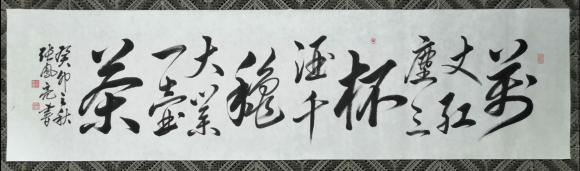 萬
丈红
塵三
杯
酒千
穐
大業
一壺
茶
癸卯之秋